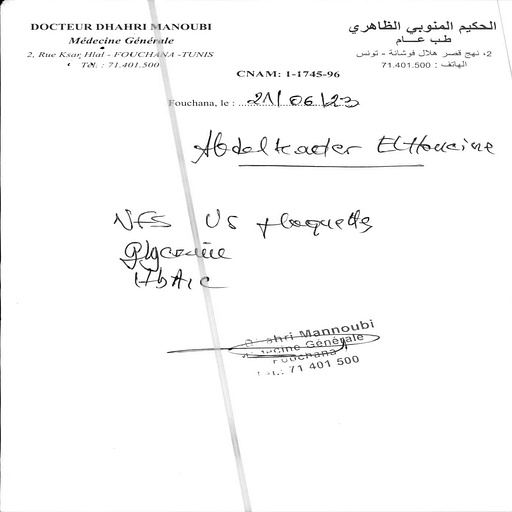 DOCTEUR DHAHRI MANOUBI
Médecine Générale
2, Rue Ksar Hlal - FOUCHANA - TUNIS
Tél. : 71.401.500
الحكيم المنوبي الظاهري
طب عـــام
2، نهج قصر هلال فوشانة - تونس
الهاتف : 71.401.500
CNAM: 1-1745-96
Fouchana, le : 21/06/23
Abdelkader ElHoucine
NFS VS plaquettes
Glycémie
HbA1c
Dhahri Mannoubi
Médecine Générale
Fouchana
Tél.: 71 401 500